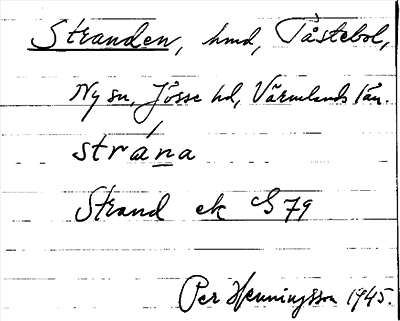 Stranden, hmd, Tåstebol,
Ny sn, Jösse hd, Värmlands län.
strána
Strand ek G 79
Per Henningsson 1945.